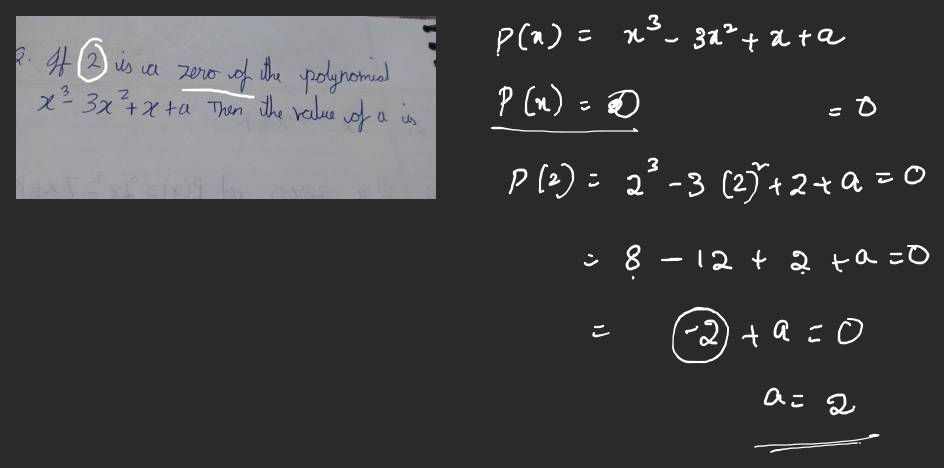 2. If 2 is a zero of the polynomial
x³ - 3x² + x + a Then the value of a is
P(x) = x³ - 3x² + x + a
P(x) = 0 = 0
P(2) = 2³ - 3 (2)² + 2 + a = 0
= 8 - 12 + 2 + a = 0
= -2 + a = 0
a = 2